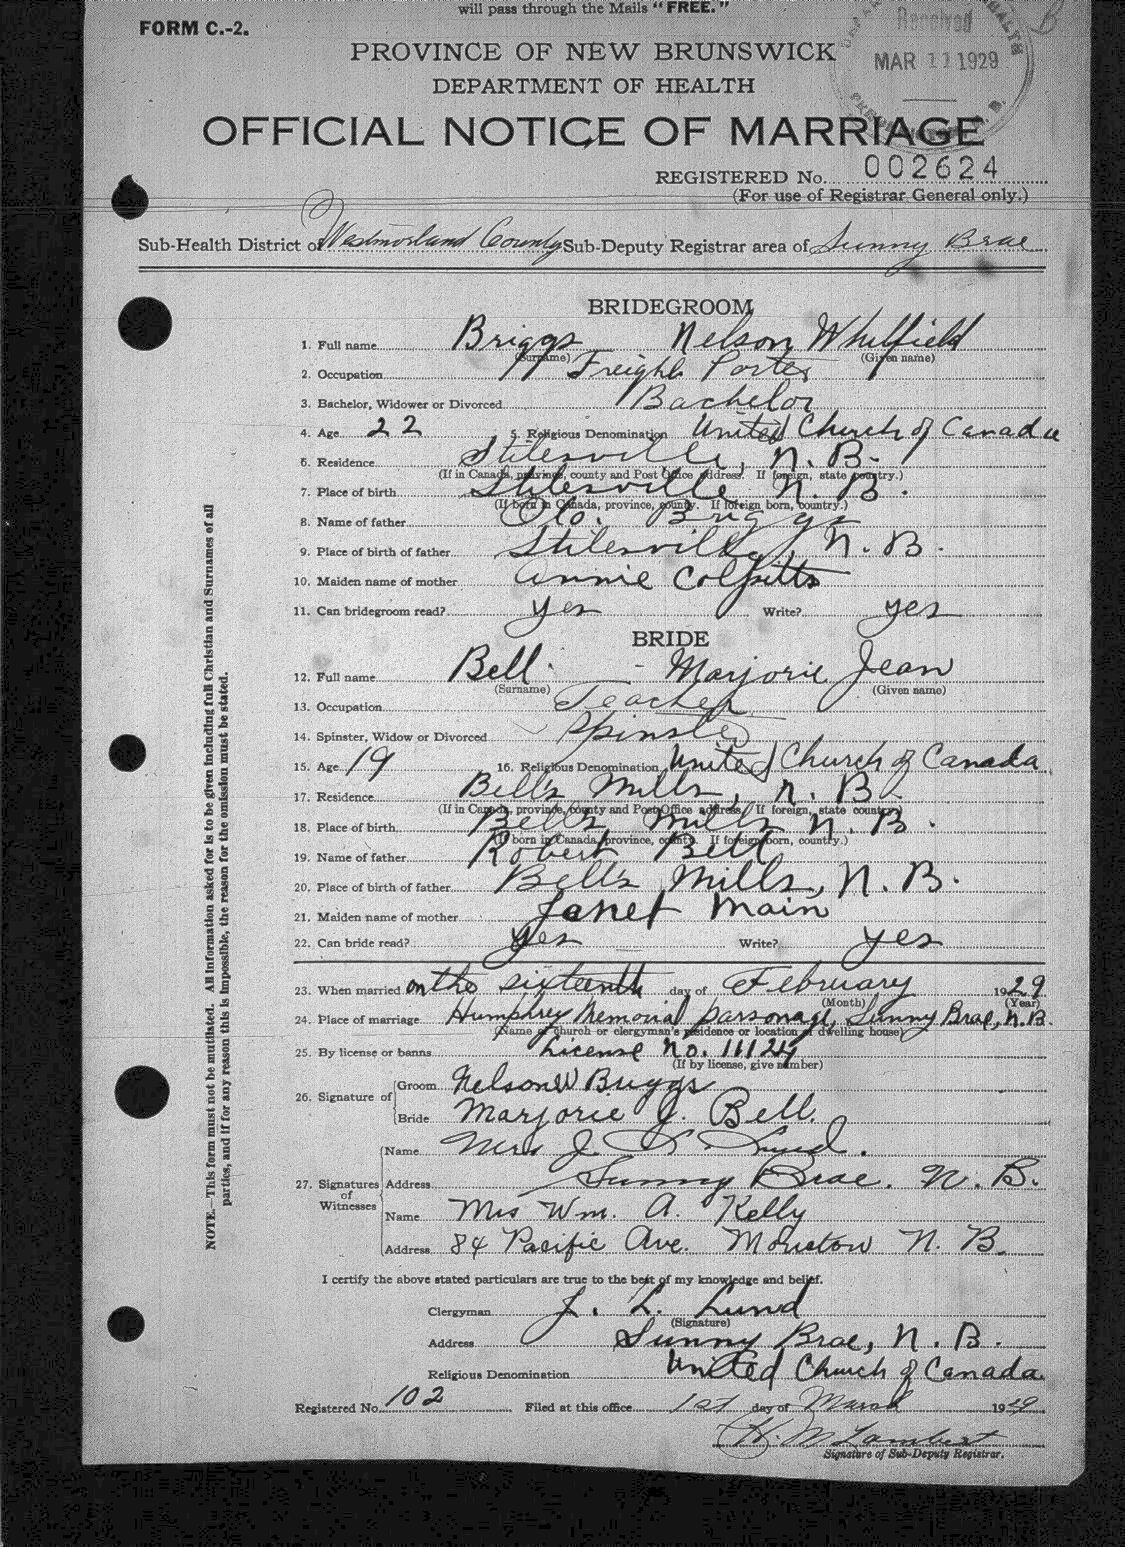 will pass through the Mails "FREE."
FORM C.-2.
Received
MAR 11 1929
PROVINCE OF NEW BRUNSWICK
DEPARTMENT OF HEALTH
OFFICIAL NOTICE OF MARRIAGE
REGISTERED No. 002624
(For use of Registrar General only.)
Sub-Health District of Westmorland County Sub-Deputy Registrar area of Sunny Brae
BRIDEGROOM
1. Full name Briggs Nelson Whitfield
(Surname) (Given name)
2. Occupation Freight Porter
3. Bachelor, Widower or Divorced Bachelor
4. Age 22 5. Religious Denomination United Church of Canada
6. Residence Stilesville, N. B.
(If in Canada, province, county and Post Office address. If foreign, state country.)
7. Place of birth Stilesville N. B.
(If born in Canada, province, county. If foreign born, country.)
8. Name of father Briggs
9. Place of birth of father Stilesville, N. B.
10. Maiden name of mother Annie Colpitts
11. Can bridegroom read? yes Write? yes
BRIDE
12. Full name Bell - Marjorie Jean
(Surname) (Given name)
13. Occupation Teacher
14. Spinster, Widow or Divorced Spinster
15. Age 19 16. Religious Denomination United Church of Canada
17. Residence Bell's Mills, N. B.
(If in Canada, province, county and Post Office address. If foreign, state country.)
18. Place of birth Bell's Mills N. B.
(If born in Canada, province, county. If foreign born, country.)
19. Name of father Robert Bell
20. Place of birth of father Bell's Mills, N. B.
21. Maiden name of mother Janet Main
22. Can bride read? yes Write? yes
23. When married on the sixteenth day of February 1929
(Month) (Year)
24. Place of marriage Humphrey Memorial parsonage, Sunny Brae, N.B.
(Name of church or clergyman's residence or location of dwelling house)
25. By license or banns License No. 11124
(If by license, give number)
26. Signature of Groom Nelson W Briggs
Bride Marjorie J. Bell.
27. Signatures of Witnesses
Name Mrs J L Lund.
Address Sunny Brae. N. B.
Name Mrs Wm. A. Kelly
Address 84 Pacific Ave. Moncton N. B.
I certify the above stated particulars are true to the best of my knowledge and belief.
Clergyman J. L. Lund
(Signature)
Address Sunny Brae, N. B.
Religious Denomination United Church of Canada.
Registered No. 102 Filed at this office 1st day of March 1929
H. M Lambert
Signature of Sub-Deputy Registrar.
NOTE.—This form must not be mutilated. All information asked for is to be given including full Christian and Surnames of all
parties, and if for any reason this is impossible, the reason for the omission must be stated.